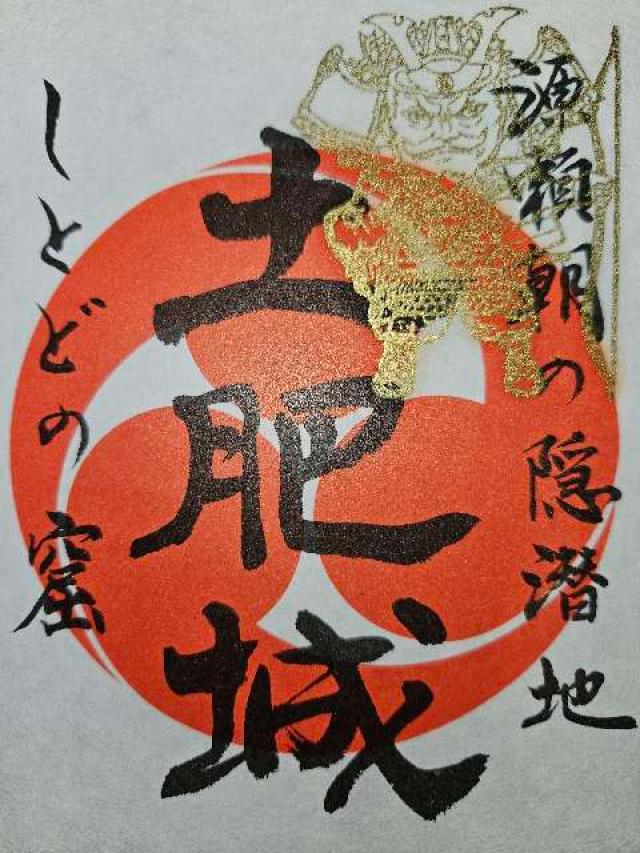 源頼朝の隠潜地
土肥城
しとどの窟